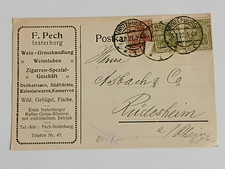 F. Pech
Insterburg
Wein-Grosshandlung
Weinstuben
Zigarren-Spezial-
Geschäft
Delikatessen, Südfrüchte,
Kolonialwaren, Konserven
Wild, Geflügel, Fische.
Erste Insterburger
Kaffee-Gross-Rösterei
mit elektrischem Betrieb
Tel.-Adr.: Pech-Insterburg.
Telephon Nr. 47.
Postk
Asbach & Co
Rüdesheim
a/Rhein